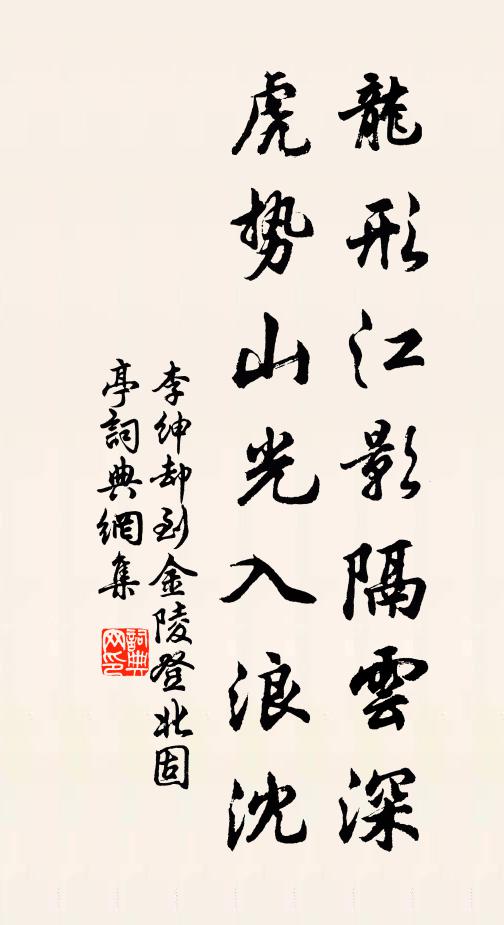 龍形江影隔雲深
虎勢山光入浪沈
李紳却到金陵登北固
亭詞典網集
詞典
网印